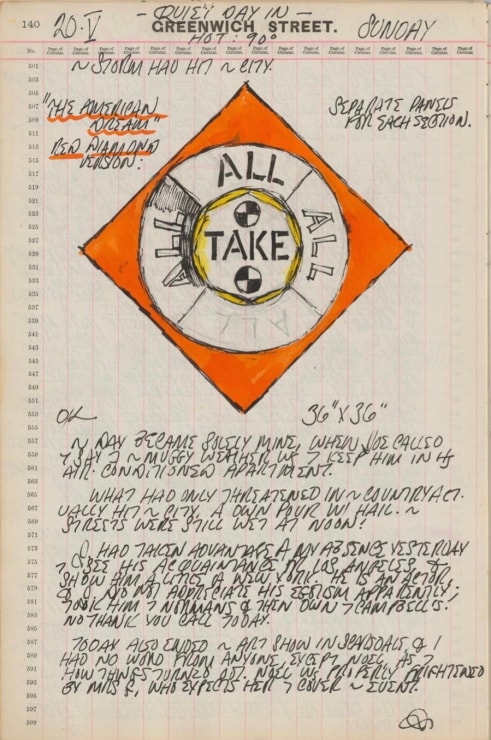 140 20·V — QUIET DAY IN — SUNDAY
GREENWICH STREET.
HOT: 90°
No. Page of Census. Page of Census. Page of Census. Page of Census. Page of Census. Page of Census. Page of Census. Page of Census. Page of Census. Page of Census.
501 ~ STORM HAD HIT ~ CITY.
503
505
507 "THE AMERICAN
509 DREAM"
511
513 RED DIAMOND
515 VERSION:
SEPARATE PANELS
FOR EACH SECTION.
517
519
521
523
525
527
529
531
533
535
537
539
541
543
545
547
549
551
ALL
ALL
ALL
ALL
TAKE
553 OK 36" X 36"
555
557 ~ DAY BECAME SOLELY MINE, WHEN JOE CALLED
559 7 SAY 7 ~ MUGGY WEATHER WD 7 KEEP HIM IN HS
561 AIR-CONDITIONED APARTMENT.
563
565 WHAT HAD ONLY THREATENED IN ~ COUNTRY ACT-
567 UALLY HIT ~ CITY. A DOWN POUR W/ HAIL. ~
569 STREETS WERE STILL WET AT NOON!
571
573 HAD TAKEN ADVANTAGE MY ABSENCE YESTERDAY
575 7 SEE HIS ACQUAINTANCE FR LOS ANGELES &
577 SHOW HIM A LITTLE NEW YORK. HE IS AN ACTOR
579 & DID NOT APPRECIATE HIS EGOISM APPARENTLY;
581 TOOK HIM 7 NORMANS & THEN DOWN 7 CAMPBELLS.
583 NO THANK YOU CALL TODAY.
585
587 TODAY ALSO ENDED ~ ART SHOW IN SCARSDALE, & I
589 HAD NO WORD FROM ANYONE, EXCEPT NOEL AS 7
591 HOW THINGS TURNED OUT. NOEL WS PROPERLY FRIGHTENED
593 BY MRS , WHO EXPECTS HER 7 COVER ~ EVENT.
595
597
599